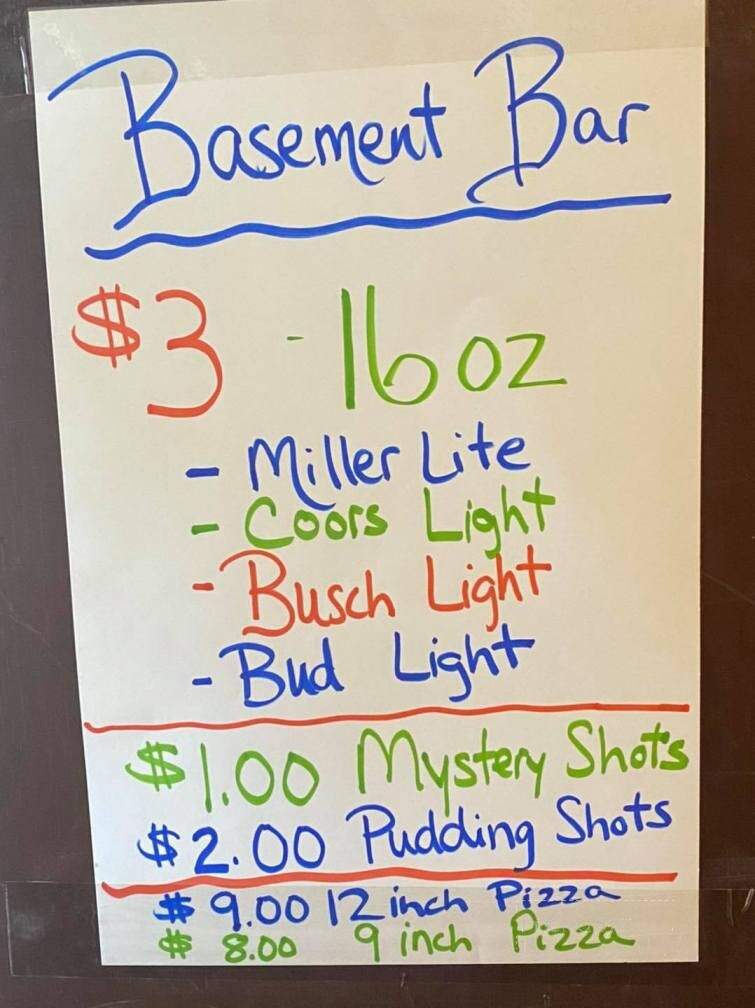 Basement Bar
$3 - 16 oz
- Miller Lite
- Coors Light
- Busch Light
- Bud Light
$1.00 Mystery Shots
$2.00 Pudding Shots
$9.00 12 inch Pizza
$8.00 9 inch Pizza